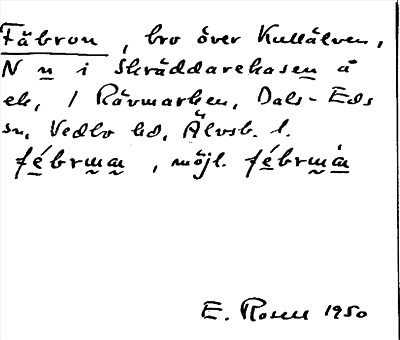 Fäbron, bro över Kullälven,
N n i Skräddarekasen å
ek, / Rävmarken, Dals-Eds
sn, Vedbo hd, Älvsb. l.
fébrɯa, möjl. fébrɯ́a
E. Rosell 1950